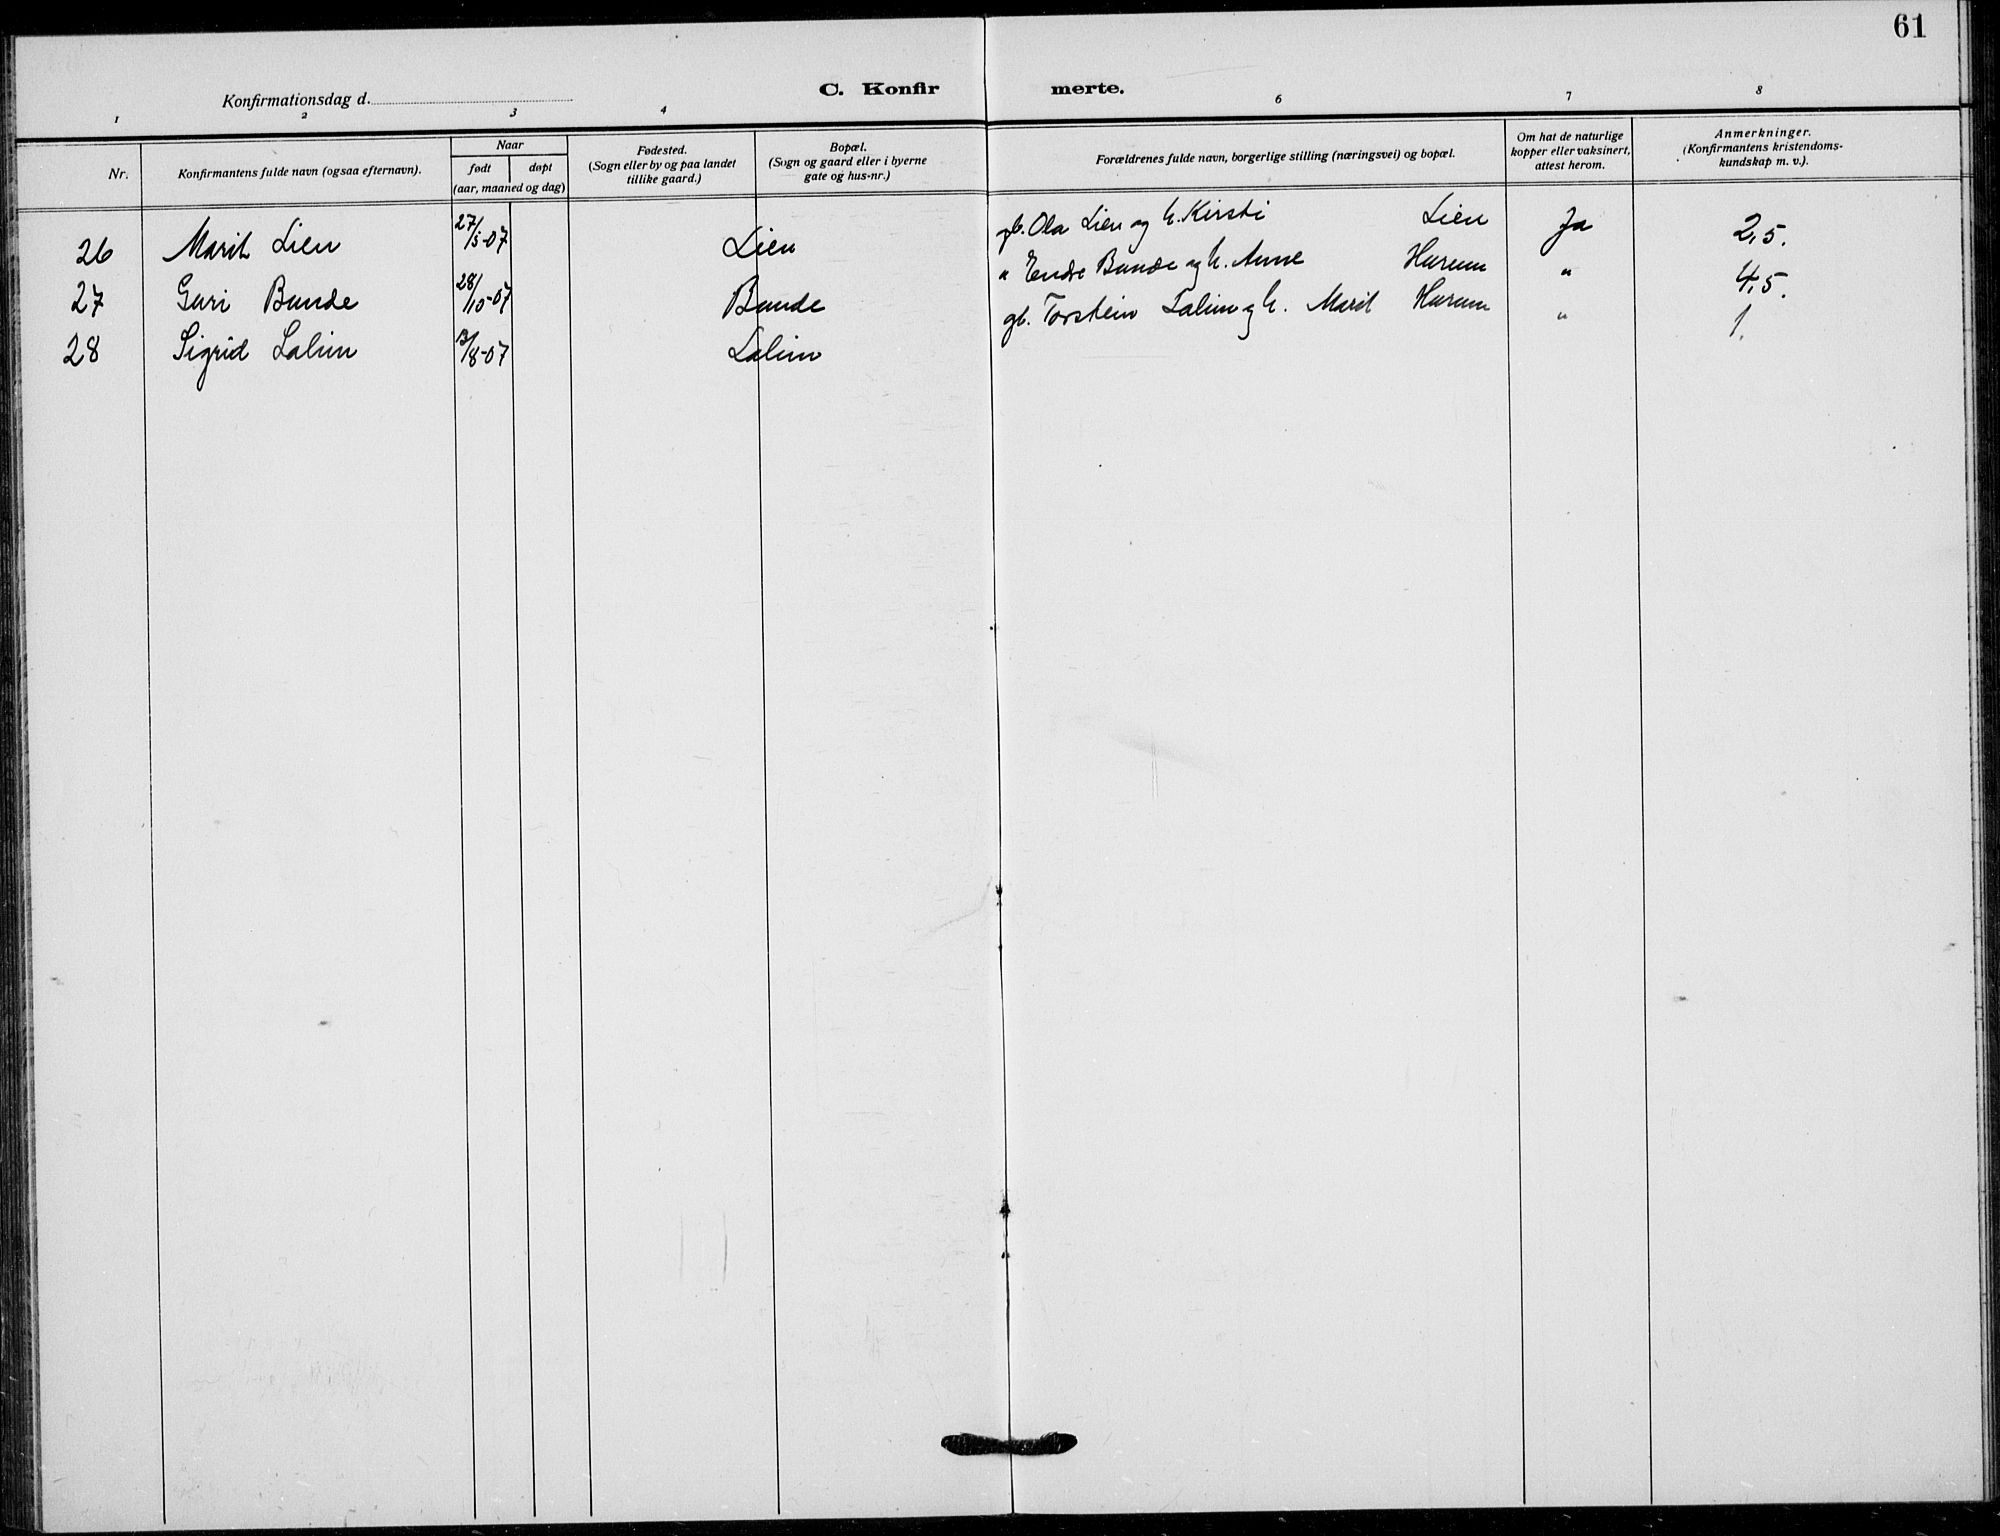 61
Konfirmationsdag d.
C. Konfir merte.
1 2 3 4 6 7 8
Nr.
Konfirmantens fulde navn (ogsaa efternavn).
Naar
født døpt
(aar, maaned og dag)
Fødested.
(Sogn eller by og paa landet
tillike gaard.)
Bopæl.
(Sogn og gaard eller i byerne
gate og hus-nr.)
Forældrenes fulde navn, borgerlige stilling (næringsvei) og bopæl.
Om hat de naturlige
kopper eller vaksinert,
attest herom.
Anmerkninger.
(Konfirmantens kristendoms-
kundskap m. v.).
26 Marit Lien 27/5-07 Lien gb. Ola Lien og h. Kirsti Lien Ja 2,5.
27 Guri Bunde 28/10-07 Bunde " Endre Bunde og h. Anne Hurum " 4,5.
28 Sigrid Lalim /8-07 Lalim gb. Torstein Lalim og h. Marit Hurum " 1.